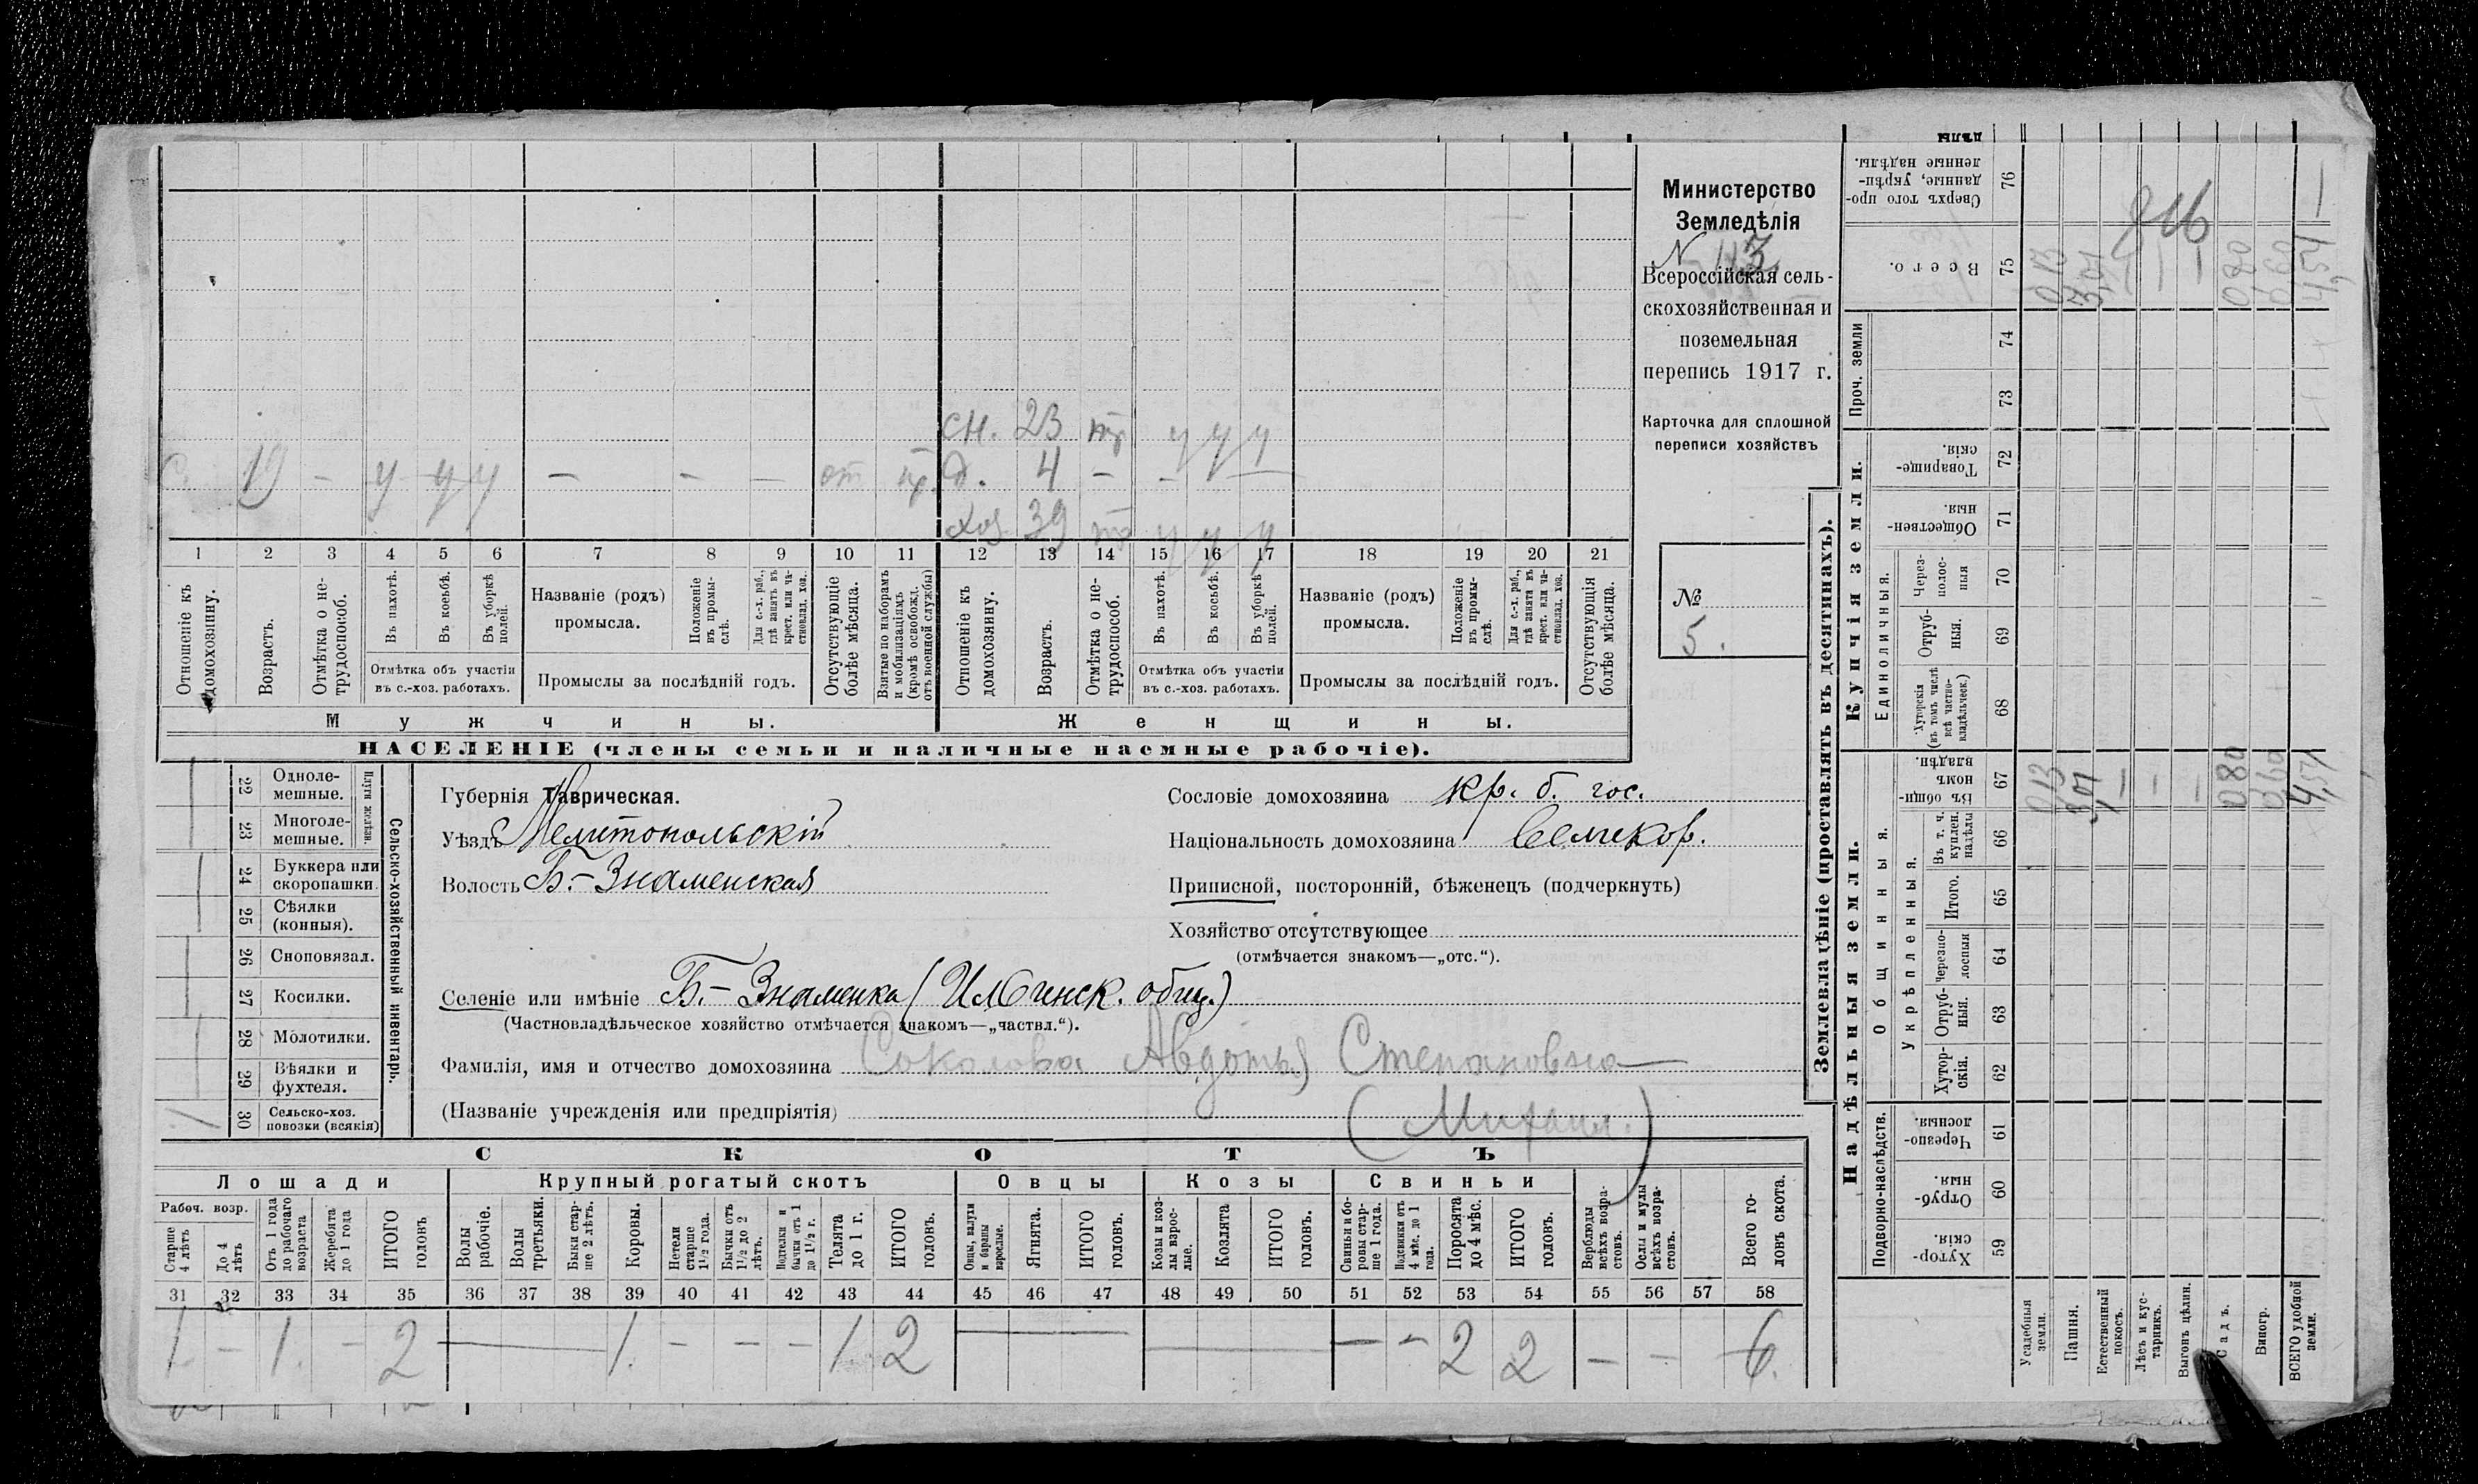 Министерство
Земледѣлія
N 43
Всероссійская сель-
скохозяйственная и
поземельная
перепись 1917 г.
Карточка для сплошной
переписи хозяйствъ
№
5.
сн. 23 тр у у у
С. 19 — у у у — — — от пр. д. 4 — — — —
хоз 39 у у у
1 2 3 4 5 6 7 8 9 10 11 12 13 14 15 16 17 18 19 20 21
Отношеніе къ домохозяину.
Возрастъ.
Отмѣтка о не-трудоспособ.
Въ пахотѣ.
Въ косьбѣ.
Въ уборкѣ полей.
Отмѣтка объ участіи
въ с.-хоз. работахъ.
Названіе (родъ)
промысла.
Положеніе въ промы-слѣ.
Для с.-х. раб., гдѣ занятъ въ крест. или ча-стновлад. хоз.
Промыслы за послѣдній годъ.
Отсутствующіе болѣе мѣсяца.
Взятые по наборамъ и мобилизаціямъ (кромѣ освобожд. отъ военной службы)
Отношеніе къ домохозяину.
Возрастъ.
Отмѣтка о не-трудоспособ.
Въ пахотѣ.
Въ косьбѣ.
Въ уборкѣ полей.
Отмѣтка объ участіи
въ с.-хоз. работахъ.
Названіе (родъ)
промысла.
Положеніе въ промы-слѣ.
Для с.-х. раб., гдѣ занята въ крест. или ча-стновлад. хоз.
Промыслы за послѣдній годъ.
Отсутствующія болѣе мѣсяца.
Мужчины.
Женщины.
НАСЕЛЕНІЕ (члены семьи и наличные наемные рабочіе).
22 Одноле-мешные.
23 Многоле-мешные.
Плуги желѣзн.
24 Буккера или скоропашки.
25 Сѣялки (конныя).
26 Сноповязал.
27 Косилки.
28 Молотилки.
29 Вѣялки и фухтеля.
30 Сельско-хоз. повозки (всякія)
1
Сельско-хозяйственный инвентарь.
Губернія Таврическая.
Уѣздъ Мелитопольскій
Волость Б.-Знаменская
Сословіе домохозяина кр. б. гос.
Національность домохозяина Великор.
Приписной, посторонній, бѣженецъ (подчеркнуть)
Хозяйство отсутствующее
(отмѣчается знакомъ—„отс.“).
Селеніе или имѣніе Б.-Знаменка (Ильинск. общ.)
(Частновладѣльческое хозяйство отмѣчается знакомъ—„частвл.“).
Фамилія, имя и отчество домохозяина Соколова Авдотья Степановна
(Названіе учрежденія или предпріятія) (Михаил.)
СКОТЪ
Лошади
Крупный рогатый скотъ
Овцы
Козы
Свиньи
Рабоч. возр.
Старше 4 лѣтъ
До 4 лѣтъ
Отъ 1 года до рабочаго возраста
Жеребята до 1 года
ИТОГО головъ
Волы рабочіе.
Волы третьяки.
Быки стар-ше 2 лѣтъ.
Коровы.
Нетели старше 1½ года.
Бычки отъ 1½ до 2 лѣтъ.
Подтелки и бычки отъ 1 до 1½ г.
Телята до 1 г.
ИТОГО головъ.
Овцы, валухи и бараны взрослые.
Ягнята.
ИТОГО головъ.
Козы и коз-лы взрос-лые.
Козлята
ИТОГО головъ.
Свиньи и бо-ровы стар-ше 1 года.
Подсвинки отъ 4 мѣс. до 1 года.
Поросята до 4 мѣс.
ИТОГО головъ.
Верблюды всѣхъ возра-стовъ.
Ослы и мулы всѣхъ возра-стовъ.
Всего го-ловъ скота.
31 32 33 34 35 36 37 38 39 40 41 42 43 44 45 46 47 48 49 50 51 52 53 54 55 56 57 58
1 — 1. — 2 — 1. — — — 1 2 — — — — 2 2 — — 6.
Землевладѣніе (проставлять въ десятинахъ).
Надѣльныя земли.
Купчія земли.
Проч. земли
Подворно-наслѣдств.
Общинныя.
Укрѣпленныя.
Единоличныя.
59 Хутор-скія.
60 Отруб-ныя.
61 Черезпо-лосныя.
62 Хутор-скія.
63 Отруб-ныя.
64 Черезпо-лосныя
65 Итого.
66 Въ т. ч. куплен. надѣлы
67 Въ общи-номъ владѣн.
68 Хуторскія (въ томъ числѣ всѣ частно-владѣльческ.)
69 Отруб-ныя.
70 Через-полос-ныя
71 Обществен-ныя.
72 Товарище-скія.
73
74
75 Всего.
76 Сверхъ того про-данные, укрѣп-ленные надѣлы.
Усадебныя земли.
Пашня.
Естественный покосъ.
Лѣсъ и кус-тарникъ.
Выгонъ цѣлин.
Садъ.
Виногр.
ВСЕГО удобной земли.
013 3,01 — — — 080 060 4,54
013 3,01 — — — 080 060 4,54 —